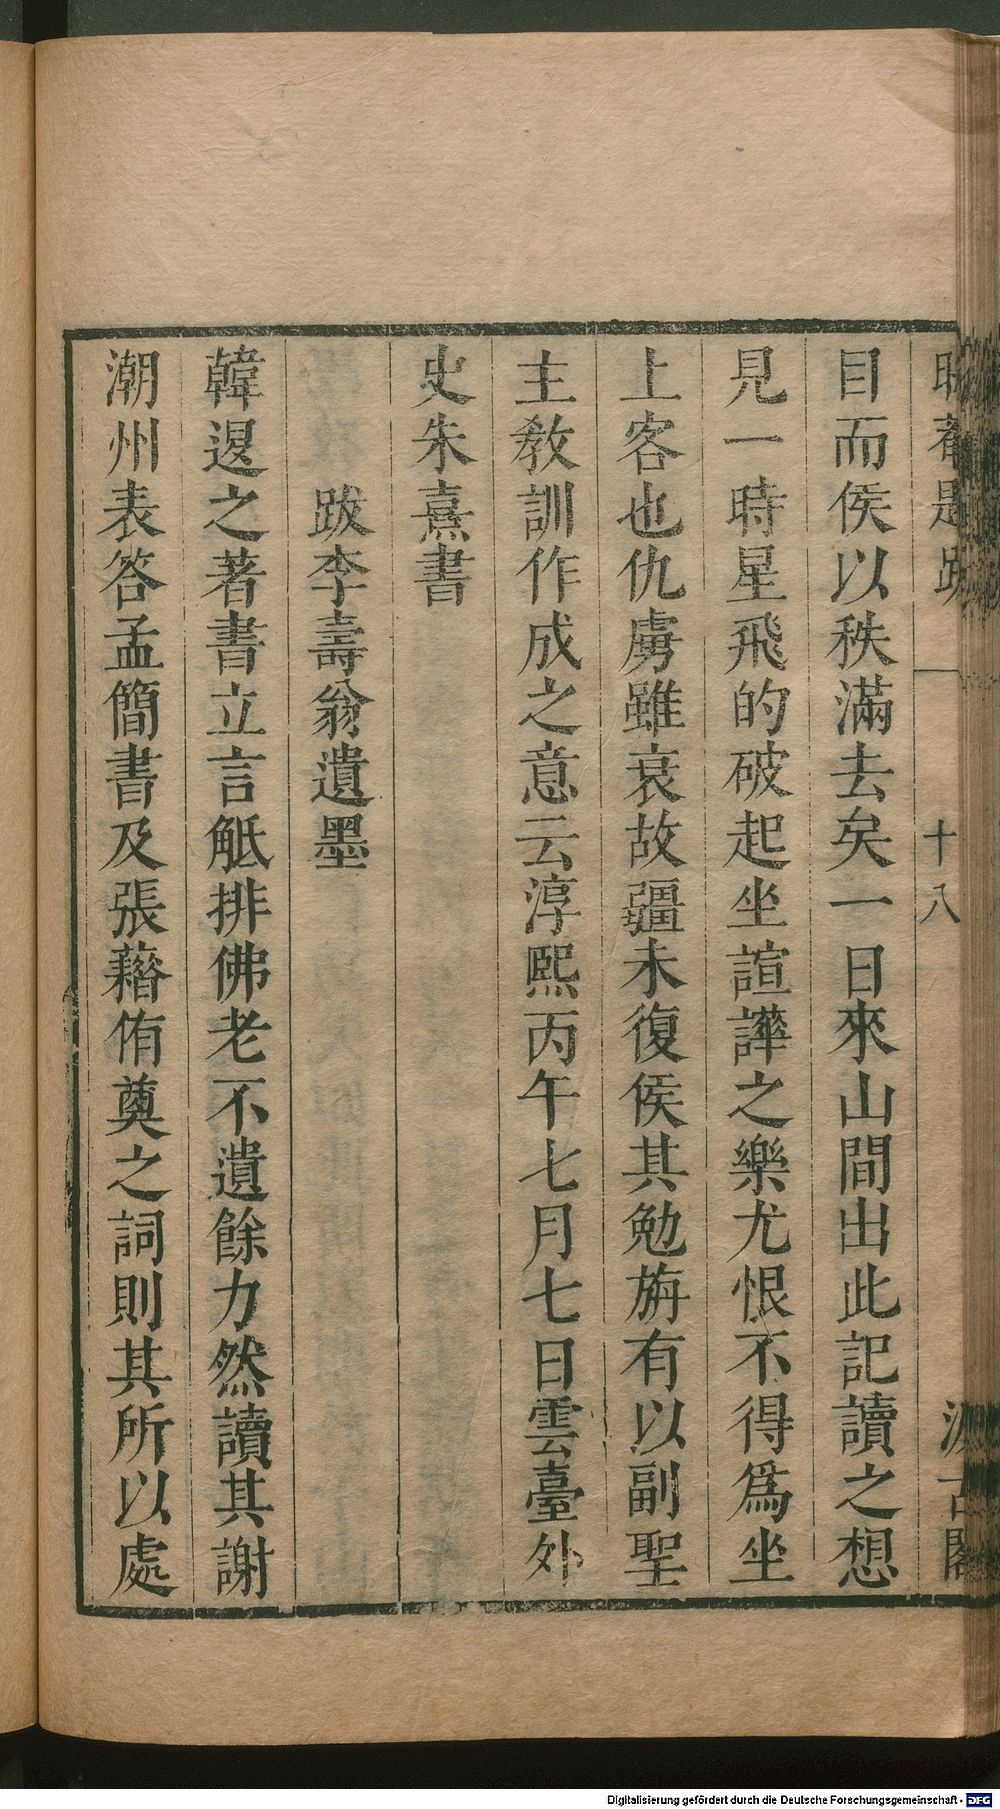 晦菴題跋 一 十八 汲古閣
目而侯以秩滿去矣一日來山間出此記讀之想
見一時星飛的破起坐諠譁之樂尤恨不得爲坐
上客也仇虜雖衰故疆未復侯其勉旃有以副聖
主敎訓作成之意云淳熙丙午七月七日雲臺外
史朱熹書
跋李壽翁遺墨
韓退之著書立言觝排佛老不遺餘力然讀其謝
潮州表答孟簡書及張藉侑奠之詞則其所以處
Digitalisierung gefördert durch die Deutsche Forschungsgemeinschaft - DFG